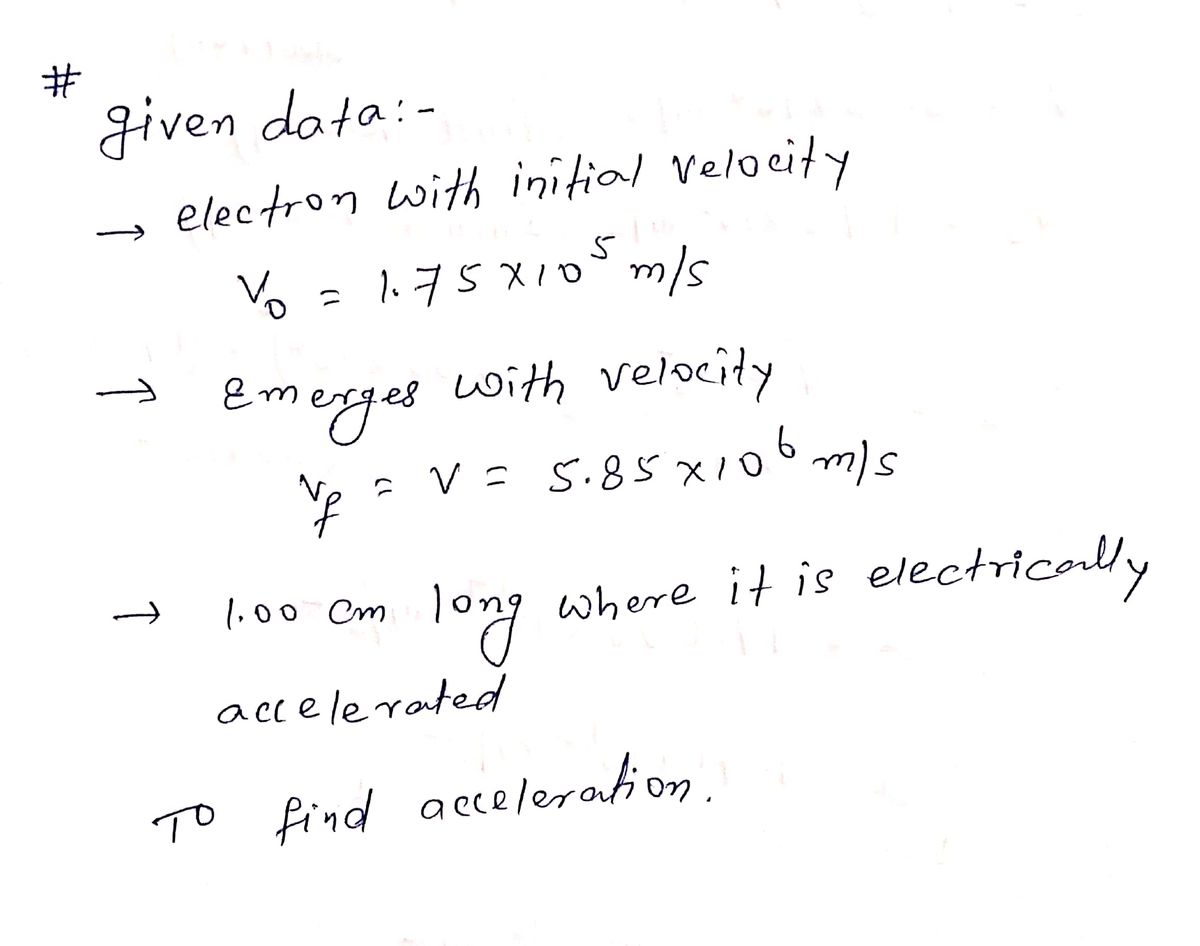 #
given data:-
→ electron with initial velocity
V₀ = 1.75 × 10⁵ m/s
→ Emerges with velocity
V_f = V = 5.85 × 10⁶ m/s
→ 1.00 cm long where it is electrically
accelerated
To find acceleration.